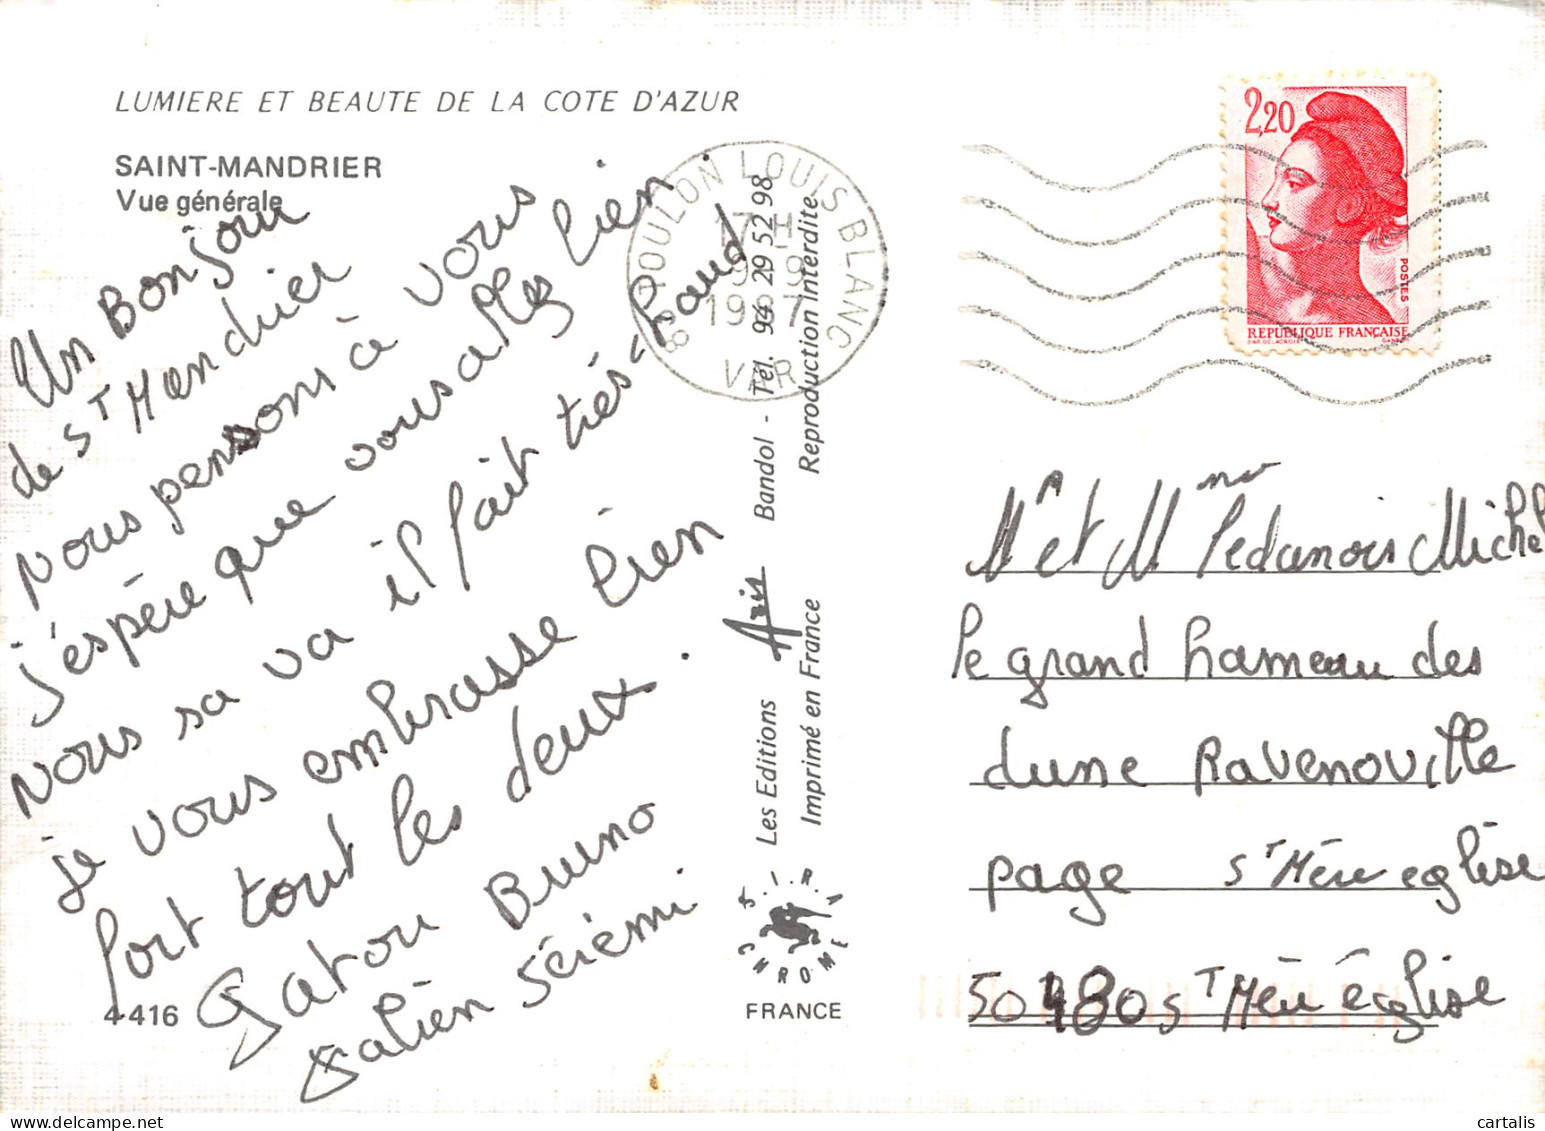 LUMIERE ET BEAUTE DE LA COTE D'AZUR
SAINT-MANDRIER
Vue générale
Un Bonjour
de St Mandrier
nous pensons à vous
j'espère que vous allez bien
nous sa va il fait très-chaud
je vous embrasse bien
fort tout les deux.
Bruno
4-416
83 TOULON LOUIS BLANC
17 H
9-9
1987
VAR
Les Editions Aris Bandol - Tél. 94 29 52 98
Imprimé en France Reproduction Interdite
S.I.R.A
CHROME
FRANCE
2,20
POSTES
REPUBLIQUE FRANÇAISE
Mr et Mme Pedanois Michel
le grand hameau des
dune Ravenoville
page St Mère eglise
50480 St Mère église
cartalis